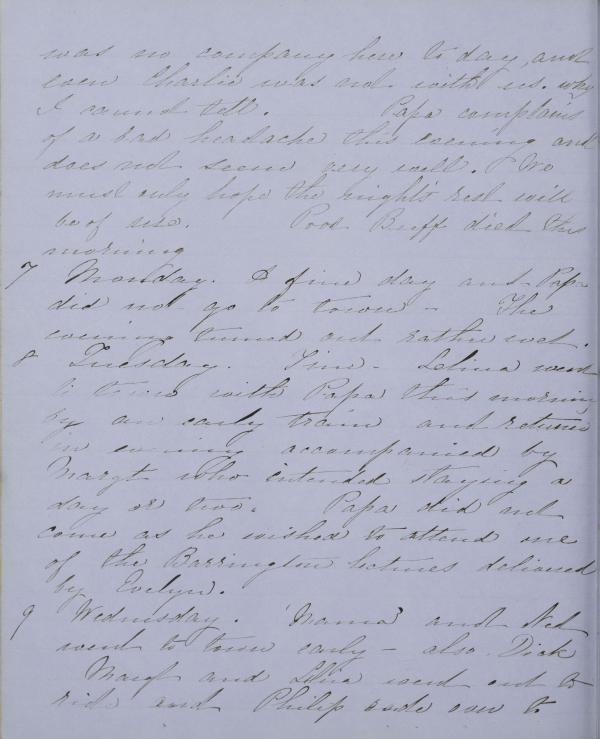 was no company here to day, and
even Charlie was not with us. why
I cannot tell. Papa complains
of a bad headache this evening and
does not seem very well. We
must only hope the night's rest will
be of use. Poor Buff died this
morning
7 Monday. A fine day and Papa
did not go to town - The
evening turned out rather wet.
8 Tuesday. Fine - Selina went
to town with Papa this morning
by an early train and returned
in evening accompanied by
Margt who intended staying a
day or two. Papa did not
come as he wished to attend one
of the Barrington lectures delivered
by Evelyn.
9 Wednesday. Mama and Ned
went to town early - also Dick
Margt and Selina went out to
ride and Philip rode over to